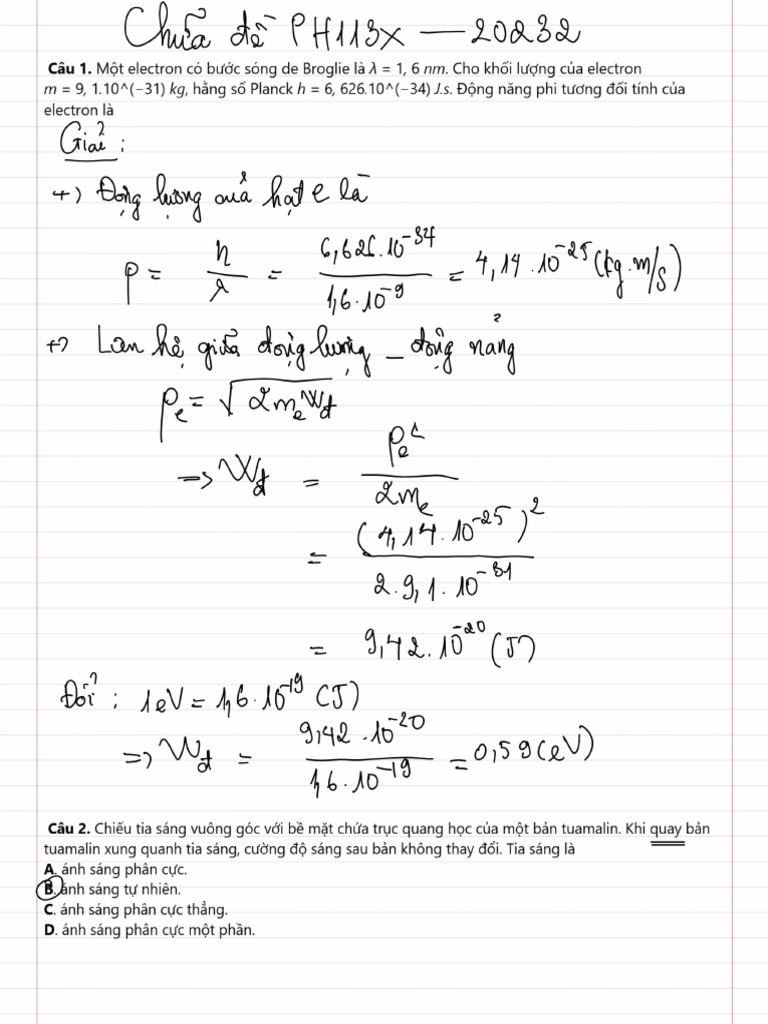 Chữa đề PH113X — 20232
Câu 1. Một electron có bước sóng de Broglie là λ = 1, 6 nm. Cho khối lượng của electron
m = 9, 1.10^(−31) kg, hằng số Planck h = 6, 626.10^(−34) J.s. Động năng phi tương đối tính của
electron là
Giải :
+) Động lượng của hạt e là
p = h/λ = 6,626.10^-34 / 1,6.10^-9 = 4,14.10^-25 (kg.m/s)
+) Liên hệ giữa động lượng _ động năng
p_e = √(2m_e W_đ)
=> W_đ = p_e^2 / 2m_e
= (4,14.10^-25)^2 / 2.9,1.10^-31
= 9,42.10^-20 (J)
Đổi : 1eV = 1,6.10^-19 (J)
=> W_đ = 9,42.10^-20 / 1,6.10^-19 = 0,59 (eV)
Câu 2. Chiếu tia sáng vuông góc với bề mặt chứa trục quang học của một bản tuamalin. Khi quay bản
tuamalin xung quanh tia sáng, cường độ sáng sau bản không thay đổi. Tia sáng là
A. ánh sáng phân cực.
B. ánh sáng tự nhiên.
C. ánh sáng phân cực thẳng.
D. ánh sáng phân cực một phần.